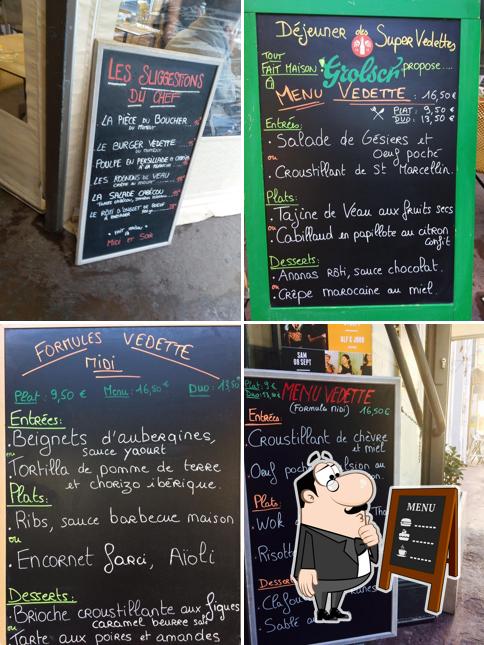 LES SUGGESTIONS
DU CHEF
LA PIÈCE DU BOUCHER
LE BURGER VEDETTE
POULPE EN PERSILLADE
LES ROGNONS DE VEAU
LA SALADE CABÉCOU
LE RÔTI D'ONGLET DE BOEUF
MIDI ET SOIR
Déjeuner des Super Vedettes
TOUT
FAIT MAISON
Grolsch propose....
MENU VEDETTE : 16,50€
PLAT: 9,50€
DUO: 13,50€
Entrées:
. Salade de Gésiers et
Oeuf poché
ou
. Croustillant de St Marcellin.
Plats:
. Tajine de Veau aux fruits secs
ou
. Cabillaud en papillote au citron
confit
Desserts:
. Ananas rôti, sauce chocolat.
ou
. Crêpe marocaine au miel.
FORMULES VEDETTE
MIDI
Plat: 9,50€ Menu: 16,50€ Duo: 13,50
Entrées:
. Beignets d'aubergines,
sauce yaourt
ou
. Tortilla de pomme de terre
et chorizo ibérique.
Plats:
. Ribs, sauce barbecue maison
ou
. Encornet farci, Aïoli
Desserts:
. Brioche croustillante aux figues
caramel beurre salé
ou
Tarte aux poires et amandes
SAM
08 SEPT
Plat: 9€
MENU VEDETTE
(Formule midi) 16,50€
Entrées:
. Croustillant de chèvre
et miel
. Oeuf
Plats:
. Wok
. Risott
Dessert
. Clafou
. Sablé
MENU